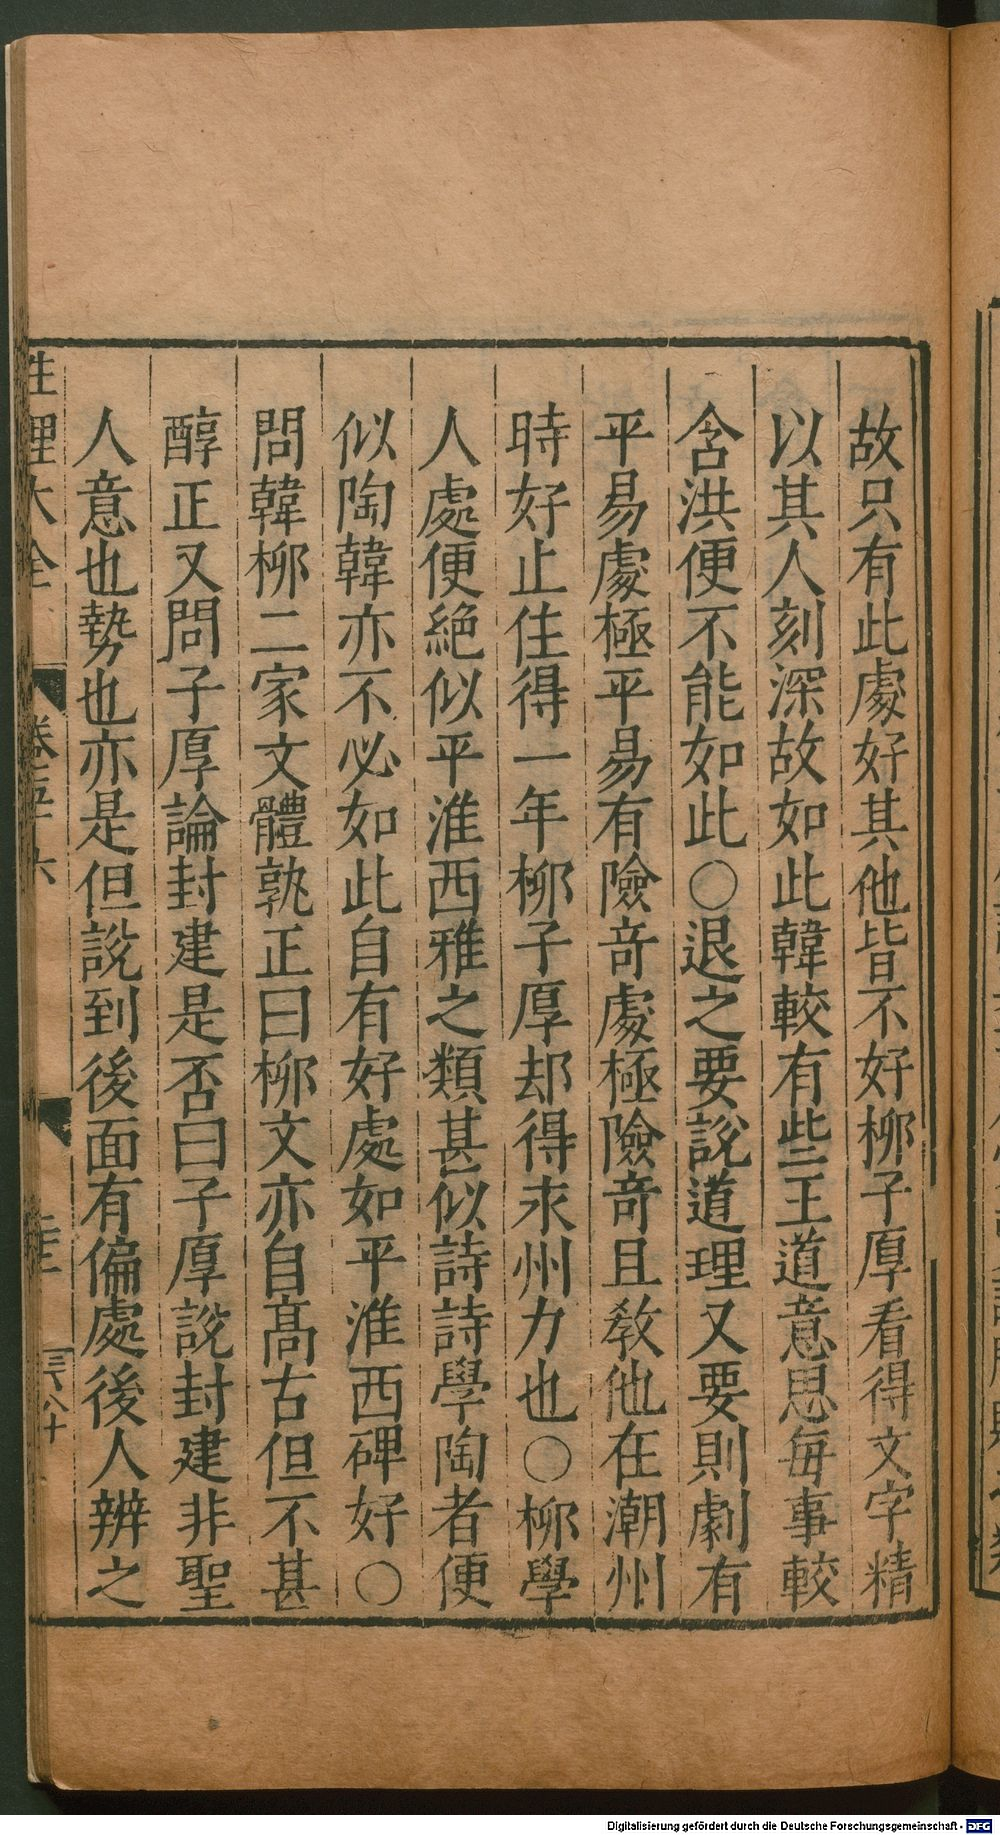 故只有此處好其他皆不好柳子厚看得文字精
以其人刻深故如此韓較有些王道意思每事較
含洪便不能如此○退之要說道理又要則劇有
平易處極平易有險奇處極險奇且教他在潮州
時好止住得一年柳子厚却得永州力也○柳學
人處便絕似平淮西雅之類甚似詩詩學陶者便
似陶韓亦不必如此自有好處如平淮西碑好○
問韓柳二家文體孰正曰柳文亦自高古但不甚
醇正又問子厚論封建是否曰子厚說封建非聖
人意也勢也亦是但說到後面有偏處後人辨之
性理大全 卷五十六
Digitalisierung gefördert durch die Deutsche Forschungsgemeinschaft - DFG